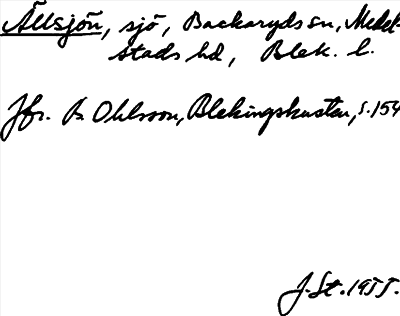 Ällsjön, sjö, Backaryds sn, Medel-
stads hd, Blek. l.
Jfr. B. Ohlsson, Blekingskusten, s. 154
J. St. 1955.